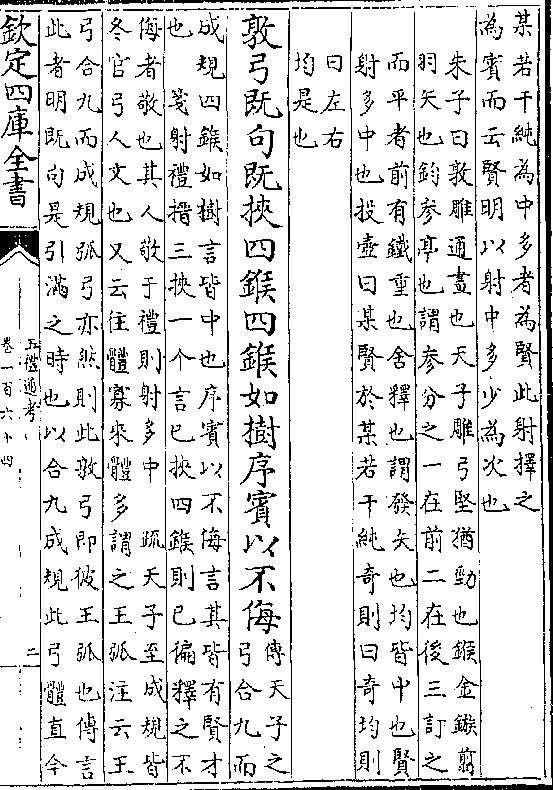 某若干純為中多者為賢此射擇之
為賓而云賢明以射中多少為次也
朱子曰敦雕通畫也天子雕弓堅猶勁也鍭金鏃翦
羽矢也鈞參亭也謂參分之一在前二在後三訂之
而平者前有鐵重也舍釋也謂發矢也均皆中也賢
射多中也投壺曰某賢於某若干純奇則曰奇均則
曰左右
均是也
敦弓既句既挾四鍭四鍭如樹序賓以不侮
傳天子之
弓合九而
成規四鍭如樹言皆中也序賓以不侮言其皆有賢才
也 箋射禮搢三挾一个言已挾四鍭則已徧釋之不
侮者敬也其人敬于禮則射多中 疏天子至成規皆
冬官弓人文也又云往體寡來體多謂之王弧注云王
弓合九而成規弧弓亦然則此敦弓即彼王弧也傳言
此者明既句是引滿之時也以合九成規此弓體直今
欽定四庫全書
五禮通考
卷一百六十四
二